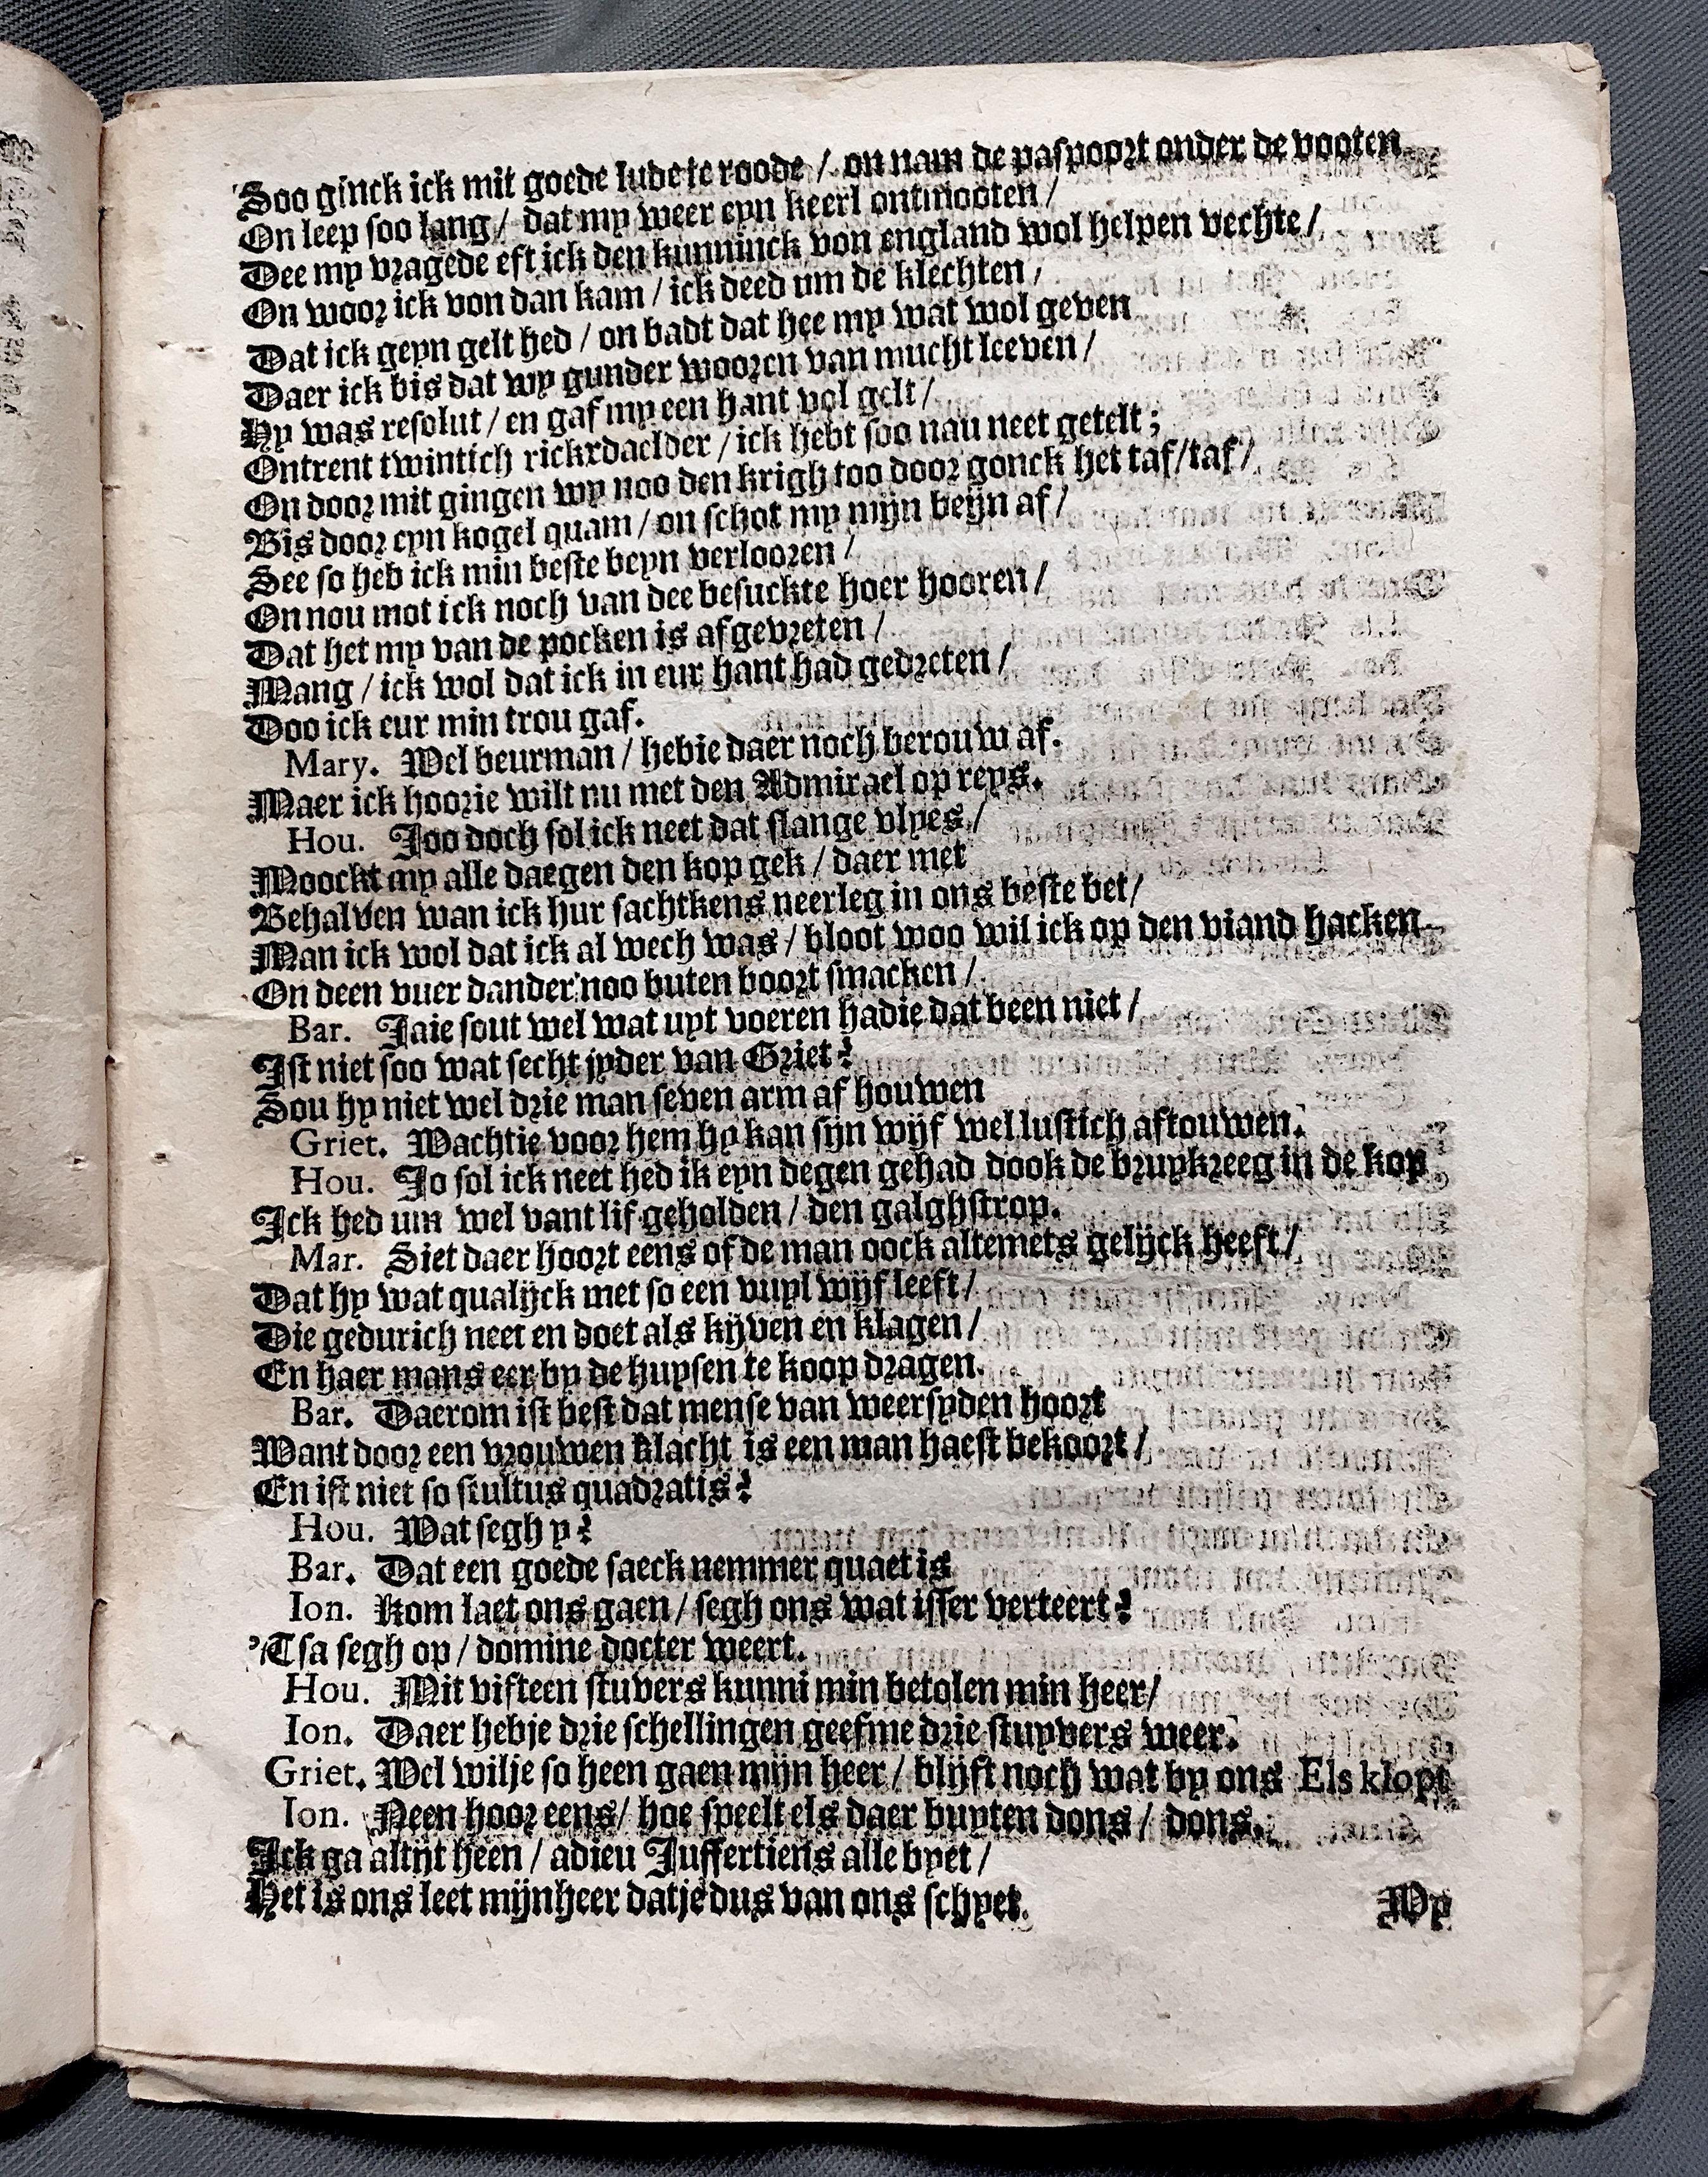 Soo ginck ick mit goede lude te roode / on nam de paspoort onder de vooten
On leep soo lang / dat my weer eyn keerl ontmooten /
Dee my vragede eft ick den kunninck von england wol helpen vechte /
On woor ick von dan kam / ick deed um de klechten /
Dat ick geyn gelt hed / on badt dat hee my wat wol geven
Daer ick bis dat wy gunder wooren van mucht leeven /
Hy was resolut / en gaf my een hant vol gelt /
Ontrent twintich rickxdaelder / ick hebt soo nau neet getelt ;
On door mit gingen wy noo den krigh too door gonck het taf/taf /
Bis door eyn kogel quam / on schot my mijn beijn af /
See so heb ick min beste beyn verlooren /
On nou mot ick noch van dee besuckte hoer hooren /
Dat het my van de pocken is afgevreten /
Mang / ick wol dat ick in eur hant had gedreten /
Doo ick eur min trou gaf.
Mary. Wel beurman / hebje daer noch berouw af.
Maer ick hoorje wilt nu met den Admirael op reys.
Hou. Joo doch sol ick neet dat slange vlyes /
Moockt my alle daegen den kop gek / daer met
Behalven wan ick hur sachtkens neerleg in ons beste bet /
Man ick wol dat ick al wech was / bloot woo wil ick op den viand hacken
On deen vuer dander noo buten boort smacken /
Bar. Jaje sout wel wat uyt voeren hadje dat been niet /
Ist niet soo wat secht jyder van Griet?
Sou hy niet wel drie man seven arm af houwen
Griet. Wachtje voor hem hy kan sijn wijf wel lustich aftouwen.
Hou. Jo sol ick neet hed ik eyn degen gehad dook de bruykreeg in de kop
Ick hed um wel vant lif geholden / den galghstrop.
Mar. Siet daer hoort eens of de man oock altemets gelijck heeft /
Dat hy wat qualijck met so een vuyl wijf leeft /
Die gedurich neet en doet als kijven en klagen /
En haer mans eer by de huysen te koop dragen.
Bar. Daerom ist best dat mense van weersyden hoort
Want door een vrouwen klacht is een man haest bekoort /
En ist niet so stultus quadratis?
Hou. Wat segh y?
Bar. Dat een goede saeck nemmer quaet is
Ion. Kom laet ons gaen / segh ons wat isser verteert?
'Tsa segh op / domine docter weert.
Hou. Mit vifteen stuvers kunni min betolen min heer /
Ion. Daer hebje drie schellingen geefme drie stuyvers weer.
Griet. Wel wilje so heen gaen mijn heer / blijft noch wat by ons Els klopt
Ion. Neen hoor eens / hoe speelt els daer buyten dons / dons.
Ick ga altijt heen / adieu Juffertiens alle byet /
Het is ons leet mijnheer datje dus van ons schyet.
Wy